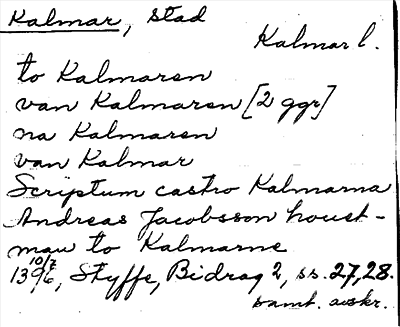 Kalmar, stad
Kalmar l.
to Kalmaren
van Kalmaren [2 ggr]
na Kalmaren
van Kalmar
Scriptum castro Kalmarna
Andreas Jacobsson houet-
man to Kalmarne
1396 10/7, Styffe, Bidrag 2, ss. 27, 28.
samt. avskr.